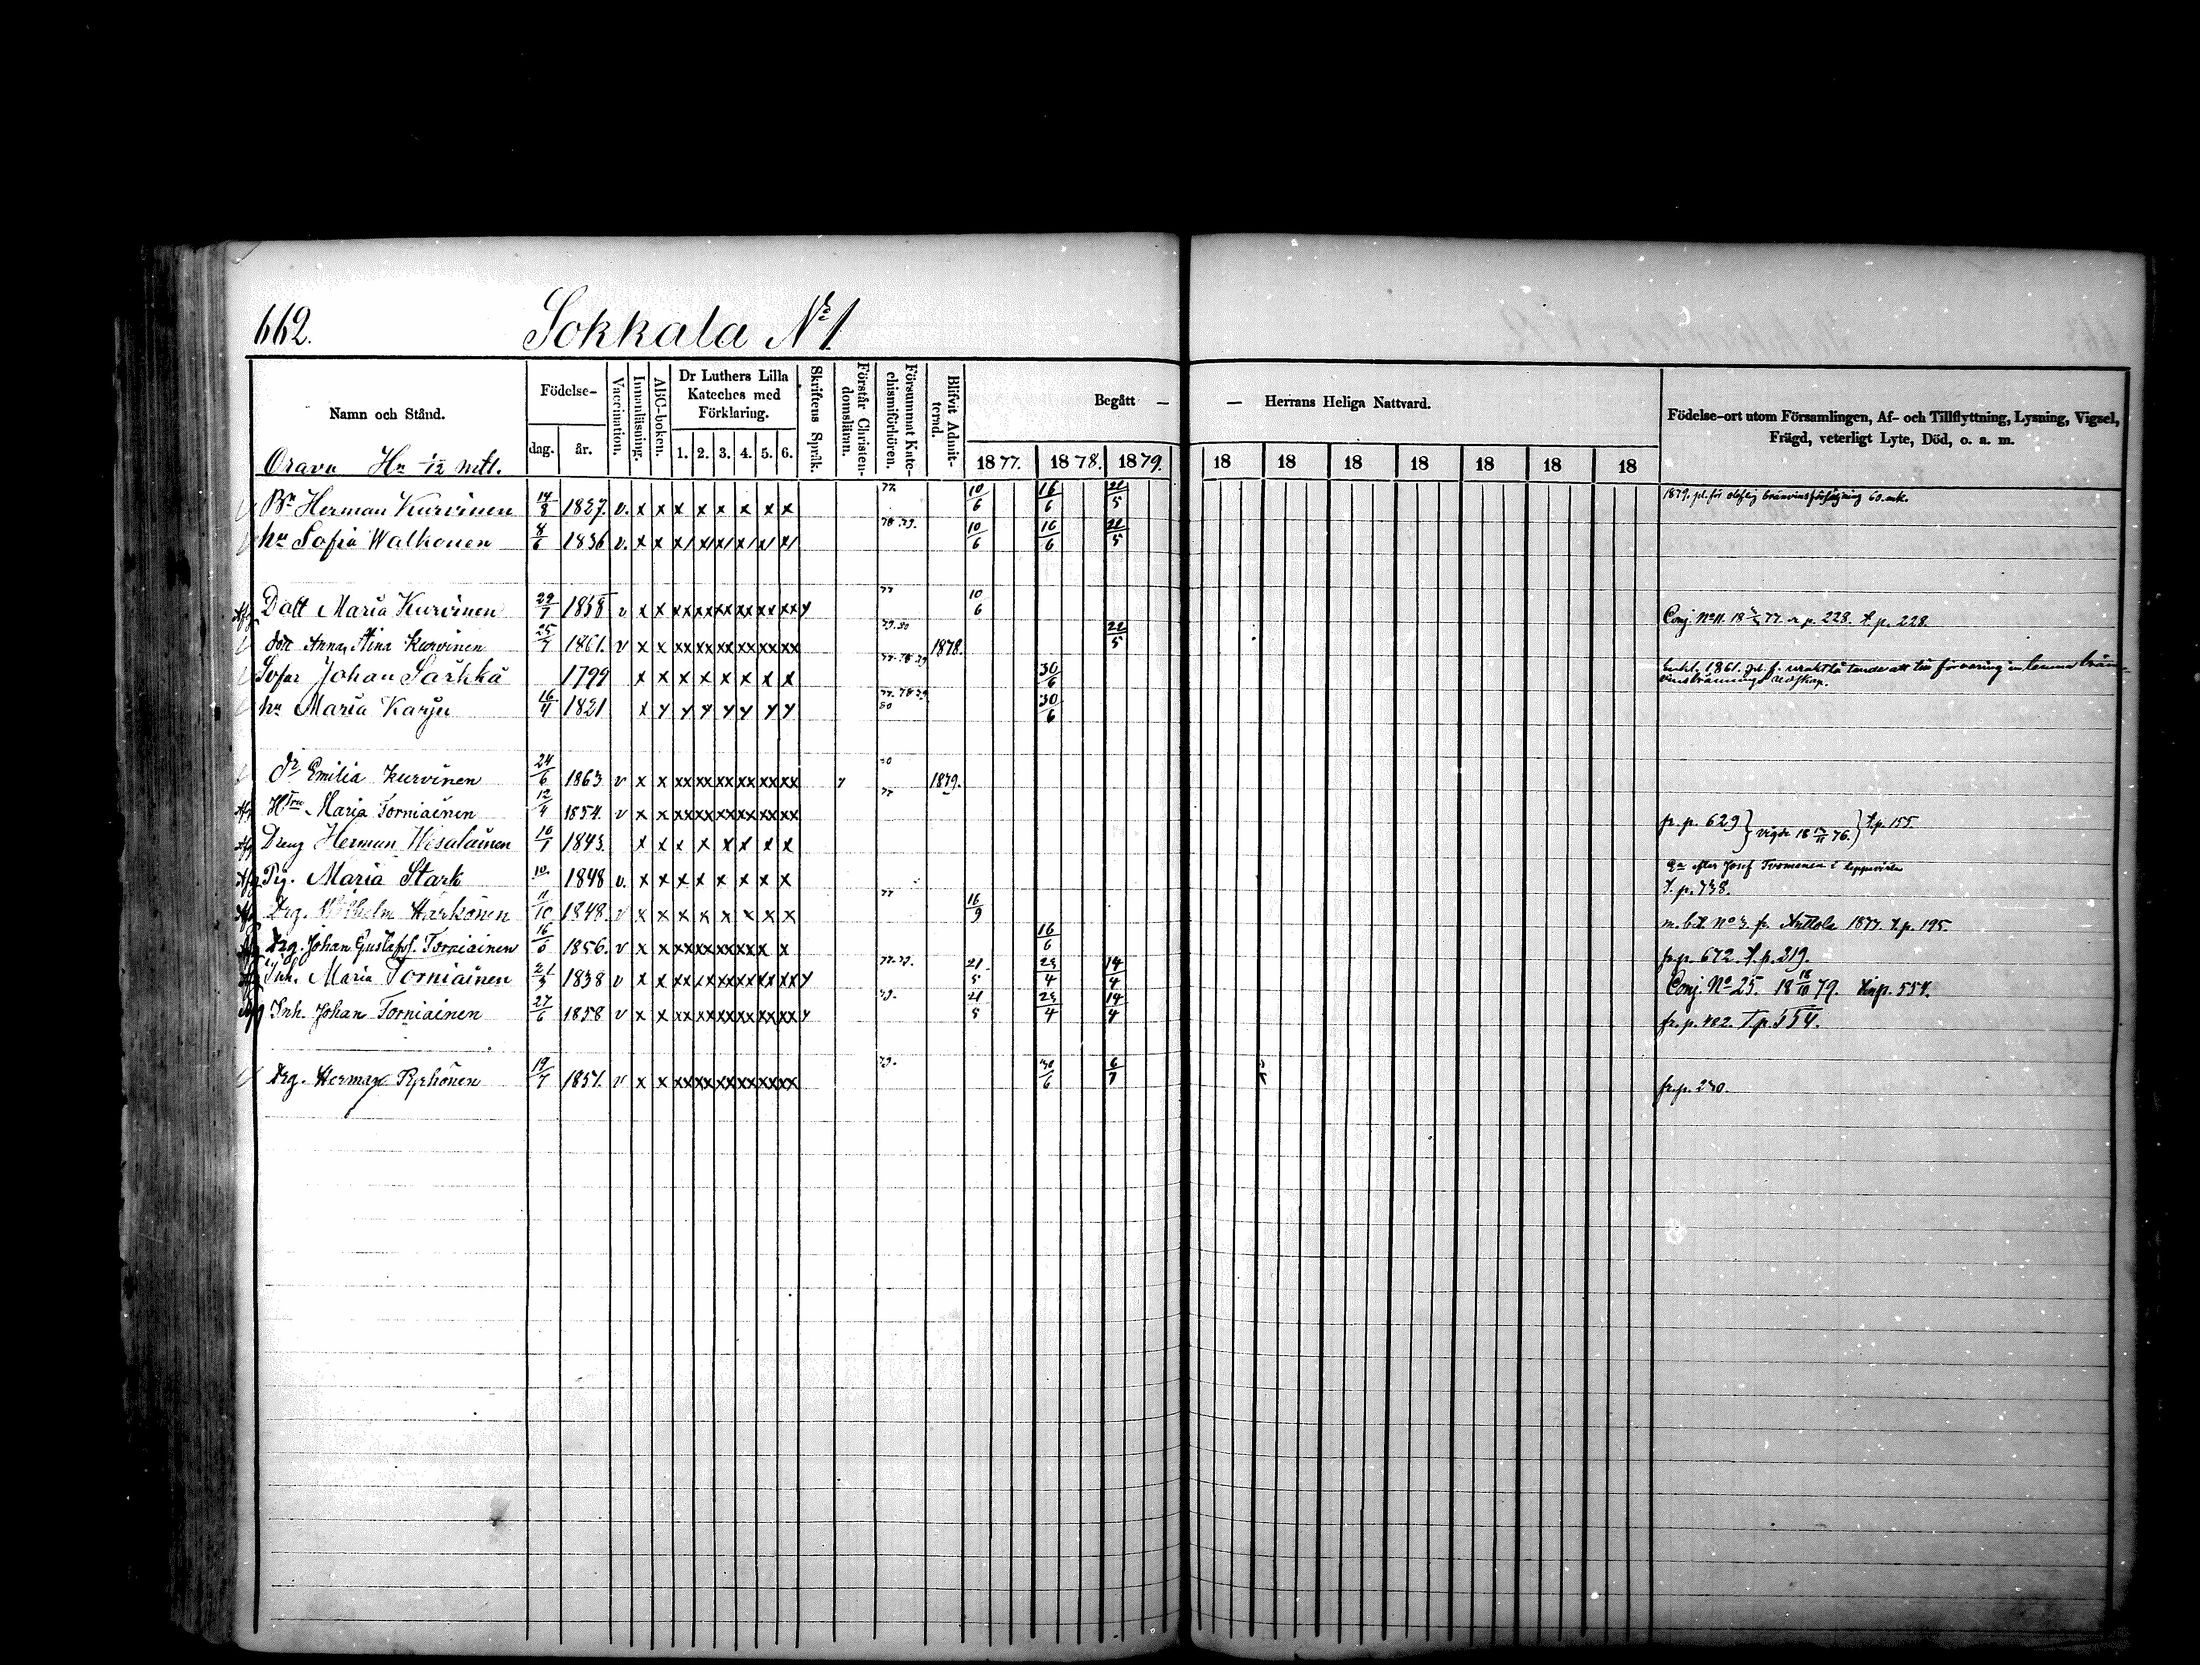 662. Sokkala No 1
Namn och Stånd.
Födelse-
dag. år.
Vaccination.
Innanläsning.
ABC-boken.
Dr Luthers Lilla Kateches med Förklaring.
1. 2. 3. 4. 5. 6.
Skriftens Språk.
Förstår Christendomsläran.
Försummat Katechismiförhören.
Blifvit Admitterad.
Begått — — Herrans Heliga Nattvard.
1877. 1878. 1879. 18 18 18 18 18 18 18
Födelse-ort utom Församlingen, Af- och Tillflyttning, Lysning, Vigsel, Frägd, veterligt Lyte, Död, o. a. m.
Orava Hn 1/12 mtl.
Bn Herman Kurvinen 14/8 1827. v. x x x x x x x x 77 10/6 16/6 22/5 1879. pl. för olaflig bränvinsförsäljning 60 mk.
hu Sofia Walkonen 8/6 1836 v. x x x x x x x x 78.79. 10/6 16/6 22/5
Afg Dott Maria Kurvinen 29/7 1858 v x x xx xx xx xx xx xx y 77 10/6 Conj. No 11. p. 228. t. p. 228.
dott Anna Stina Kurvinen 25/7 1861. v x x xx xx xx xx xx xx 79.80 1878. 22/5
Johan Särkkä 1799 x x x x x x x x 77.78.79 30/6
hu Maria Karju 16/4 1821 x y y y y y y y 77.78.79 80 30/6
dr Emilia Kurvinen 24/6 1863 v x x xx xx xx xx xx xx y 80 1879.
Afg Maria Torniainen 12/4 1854. v x x xx xx xx xx xx xx 77 fr. p. 629
Afg Dreng Herman Wesalainen 10/1 1843. x x x x x x x x vigde 76. t. p. 155.
Afg Pig. Maria Stark 10. 1848 v. x x x x x x x x efter Josef t. p. 738.
Afg Drg. Wilhelm Härkönen 11/10 1848. v x x x x x x x x 77 16/9 m. bet. No 3. fr. Anttola 1877. t. p. 195.
Afg Drg. Johan Gustafss. Torniainen 1856. v x x xx xx xx xx x x 16/6 fr. p. 672. t. p. 319.
Afg Inh. Maria Torniainen 21/3 1838 v x x xx xx xx xx xx xx y 77.79. 21/5 28/4 14/4 Conj. No 25. 18 18/10 79. t. p. 554.
Afg Inh. Johan Torniainen 27/6 1858 v x x xx xx xx xx xx xx y 79. 21/5 28/4 14/4 fr. p. 482. T. p. 554.
Drg. Herman 19/7 1857. v x x xx xx xx xx xx xx 79. 30/6 6/7 fr. p. 230.